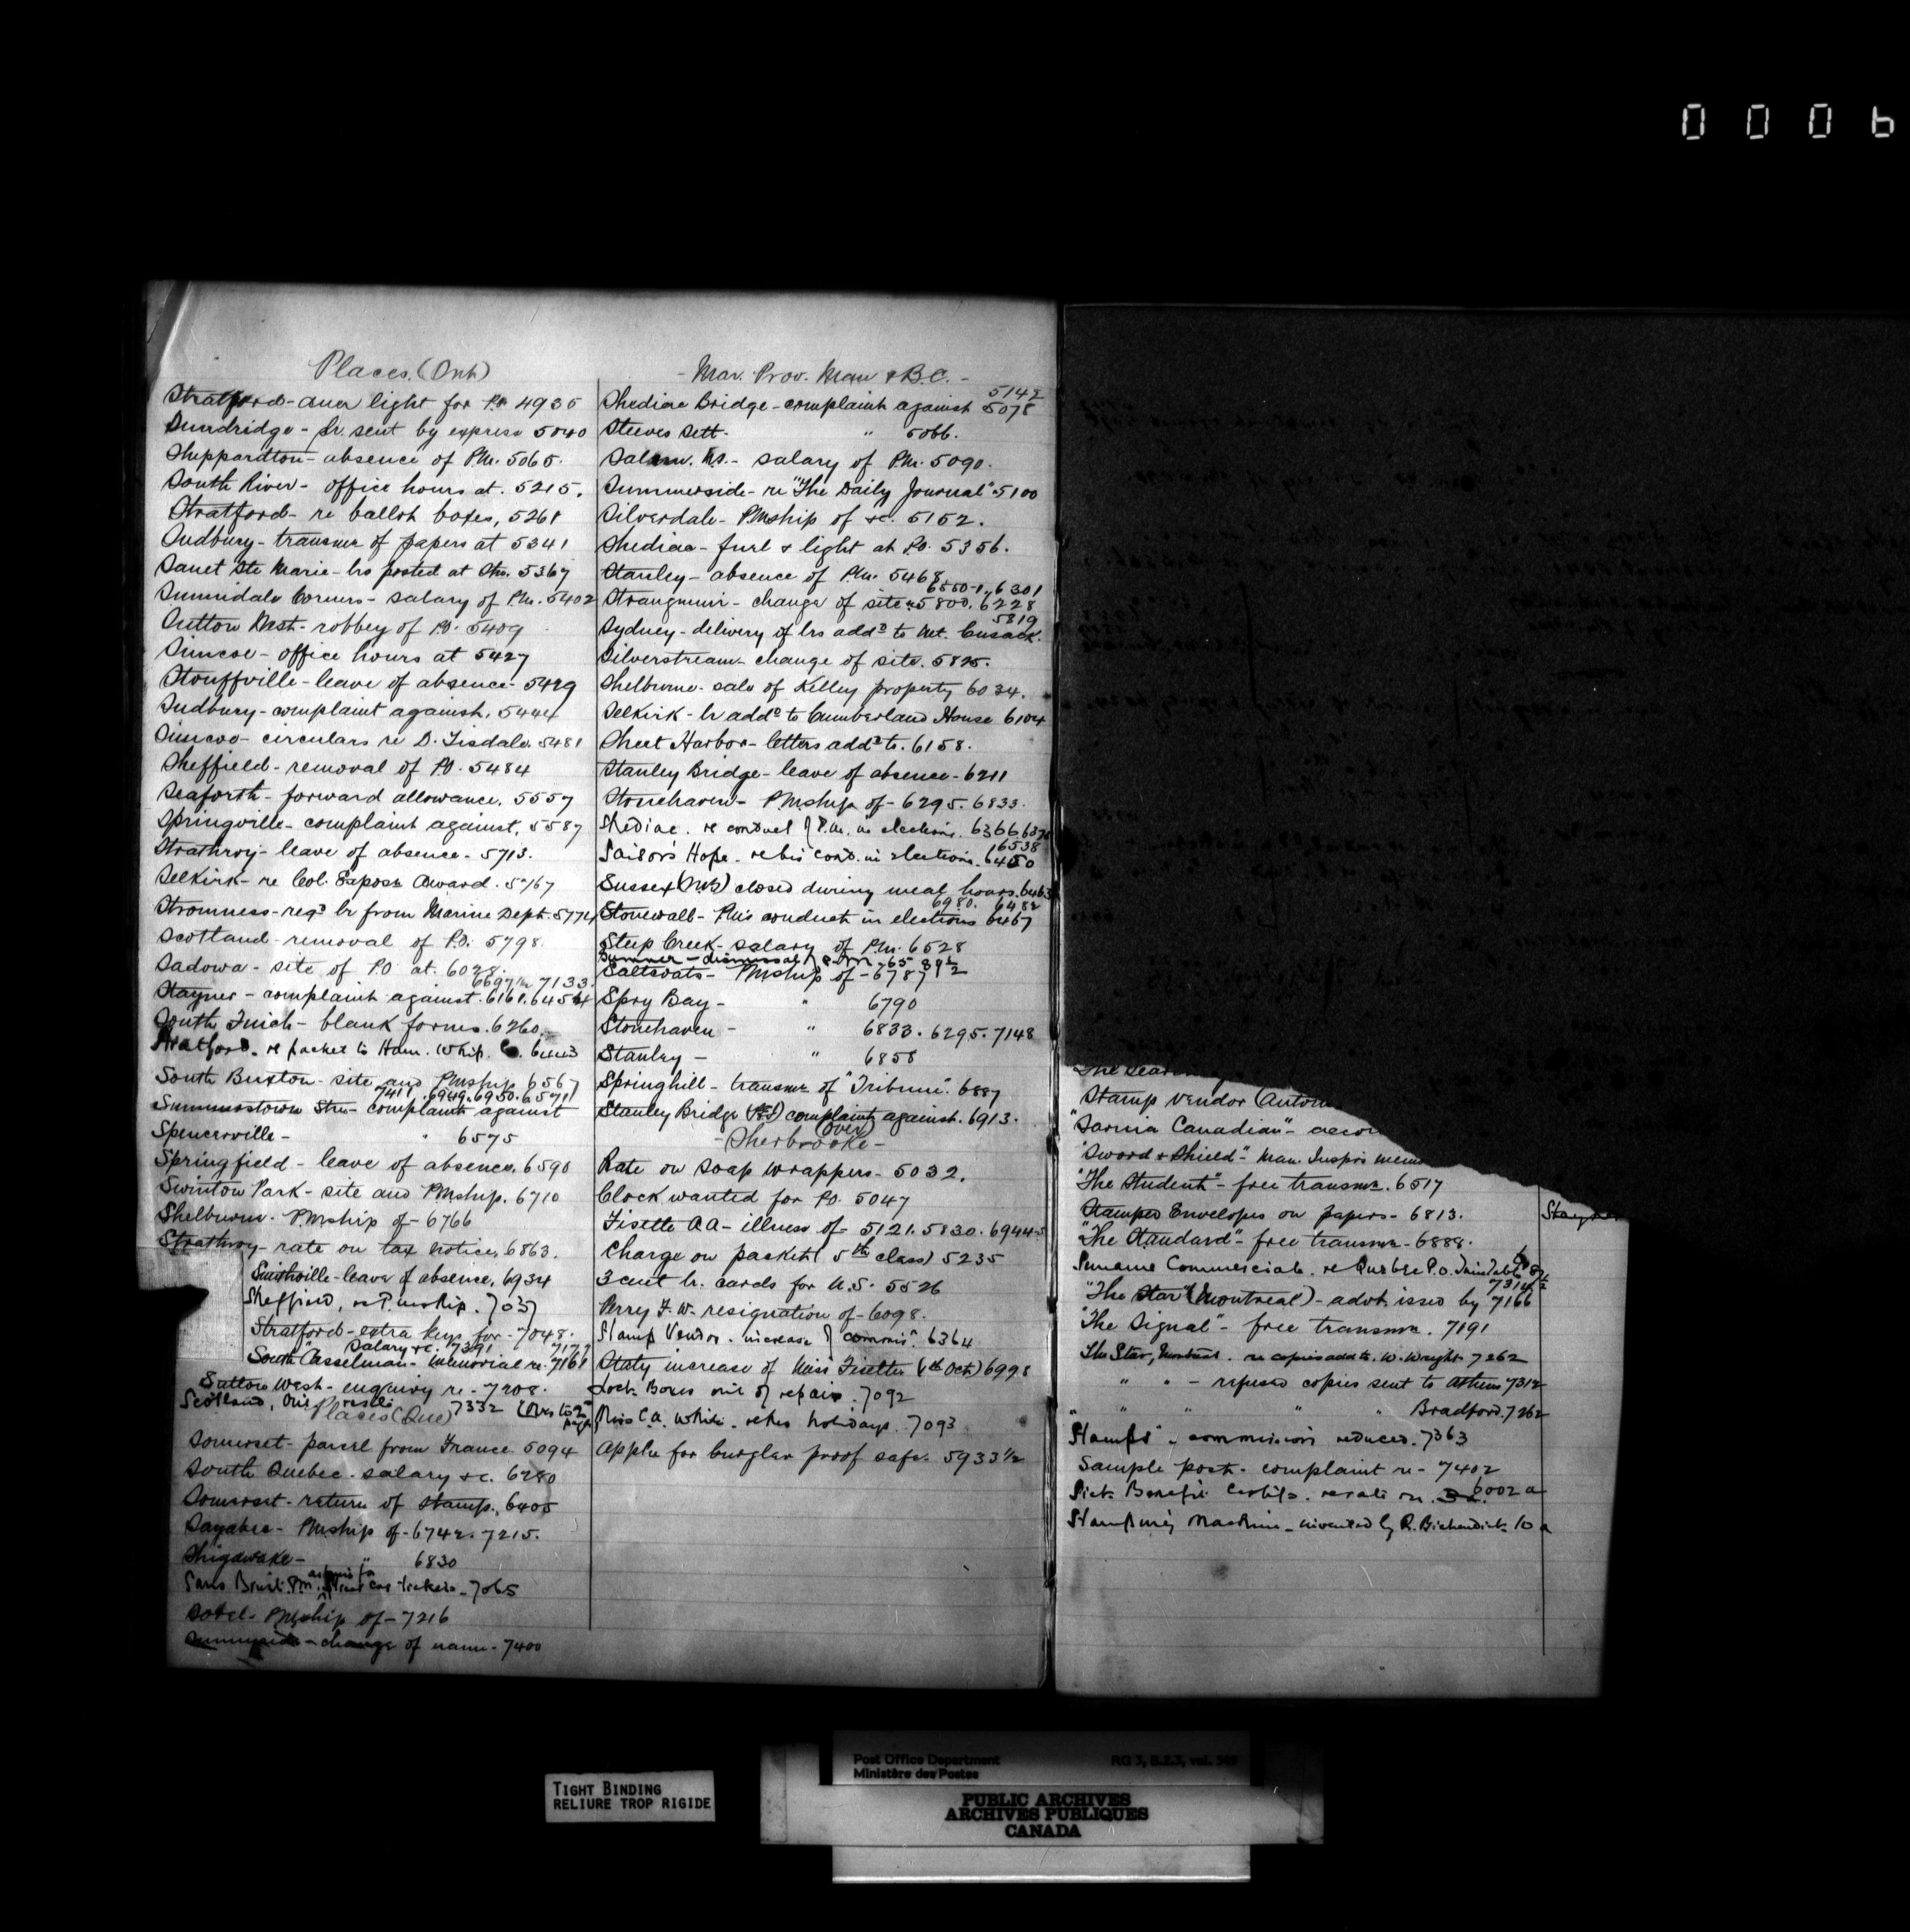 0 0 0 6
Places. (Ont)
Stratford - light for P.O. 4935
Sundridge - lr. sent by express 5040
Sheppardton - absence of P.M. 5065.
South River - office hours at. 5215.
Stratford - re ballot boxes, 5261
Sudbury - transmn of papers at 5341
Sault Ste Marie - lrs posted at Stn. 5367
Sunnidale Corners - salary of P.M. 5402
Sutton West - robbey of P.O. 5409
Simcoe - office hours at 5427
Stouffville - leave of absence - 5429
Sudbury - complaint against. 5444
Simcoe - circulars re D. Tisdale. 5481
Sheffield - removal of P.O. 5484
Seaforth - forward allowance. 5557
Springville - complaint against. 5587
Strathroy - leave of absence - 5713.
Selkirk - re Col. Award. 5767
Stromness - regd lr from Marine Dept. 5774
Scotland - removal of P.O. 5798.
Sadowa - site of P.O at. 6028.
6697½ 7133.
Stayner - complaint against. 6161. 6454
South Finch - blank forms. 6260.
Stratford. re packet to Ham. Whip. Co. 6443
South Buxton - site and PMship. 6567
7411. 6949. 6950. 6571
Summerstown Stn - complaint against
Spencerville - " 6575
Springfield - leave of absence. 6590
Swinton Park - site and PMship. 6710
Shelburne. PMship of - 6766
Strathroy - rate on tax notice. 6863.
Smithville - leave of absence. 6934
Sheffield, re P.mship. 7037
Stratford - extra keys for - 7048.
" salary &c. 7391 7177
South Casselman - memorial re. 7161
Sutton West - enquiry re - 7208.
Scotland, Ont. 7332 (Over to 2nd page)
Places (Que)
Somerset - parcel from France. 5094
South Quebec - salary &c. 6280
Somerset - return of stamp. 6405
Sayabec - PMship of - 6742. 7215.
Shigawake - " 6830
P.M. car tickets - 7065
Sorel - PMship of - 7216
Sunnyside - change of name - 7400
- Mar. Prov. Man & B.C. -
5142
Shediac Bridge - complaint against 5078
Steeves Sett. " 5066.
Salem. N.S. - salary of P.M. 5090.
Summerside - re "The Daily Journal" 5100
Silverdale - PMship of &c. 5152.
Shediac - fuel & light at P.O. 5356.
Stanley - absence of P.M. 5468
6550-1, 6301
Strangmuir - change of site. 5800. 6228
5819
Sydney - delivery of lrs addd to Mt. Cusack.
Silverstream - change of site. 5825.
Shelburne - sale of Kelley property 6034.
Selkirk - lr addd to Cumberland House 6104
Sheet Harbor - letters addd to. 6158.
Stanley Bridge - leave of absence - 6211
Stonehaven - PMship of - 6295. 6833.
Shediac. re conduct of P.M. in elections. 6366
6538
Sailor's Hope - re his cond. in elections. 6450
Sussex (NB) closed during meal hours. 6463
6980. 6482
Stonewall - PM's conduct in elections 6467
Steep Creek - salary of P.M. 6528
Sumner - dismissal of P.M. 6589½
Saltcoats - PMship of - 6787
Spry Bay - " 6790
Stonehaven - " 6833. 6295. 7148
Stanley - " 6858
Springhill - transmn of "Tribune". 6887
Stanley Bridge (PEI) complaint against. 6913.
(over)
- Sherbrooke -
Rate on soap wrappers - 5032.
Clock wanted for P.O. 5047
Fisette A A - illness of - 5121. 5830. 6944-5
Charge on packet (5th class) 5235
3 cent lr. cards for U.S. 5526
Perry F. W. resignation of - 6098.
Stamp Vendor - increase of commisn. 6364
Staty increase of Miss Fisette (Oct) 6998
Lock Boxes out of repair. 7092
Miss C.A. White. re her holidays. 7093
Appln for burglar proof safe. 5933½
Stamp Vendor
"Sarnia Canadian" -
"Sword & Shield" - Man. Inspr's
"The Student" - free transmn. 6517
Stamped Envelopes on papers - 6813.
"The Standard" - free transmn - 6888.
Commercial. re Quebec P.O.
7314½
"The Star" (Montreal) - advt. issed by 7166
"The Signal" - free transmn. 7191
The Star, Montreal. re copies add to. W. Wright 7262
" " - refused copies sent to Athens 7312
" " " " " Bradford. 7262
Stamps - commission reduced. 7363
Sample post - complaint re - 7402
Sick Benefit Certifs. re rate on 6002 a
Stamping Machine - invented by R. 10 a
TIGHT BINDING
RELIURE TROP RIGIDE
Post Office Department RG 3, B.2.3, vol. 549
Ministère des Postes
PUBLIC ARCHIVES
ARCHIVES PUBLIQUES
CANADA